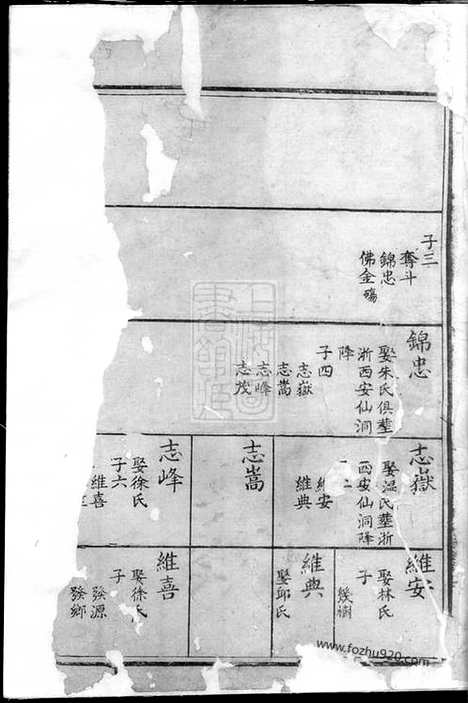 子三
奪斗
錦忠
佛金殤
錦忠
娶朱氏俱塟
浙西安仙洞
降
子四
志嶽
志嵩
志峰
志茂
志嶽
娶溫氏塟浙
西安仙洞降
子二
維安
維典
志嵩
志峰
娶徐氏
子六
維喜
維安
娶林氏
子
發樹
維典
娶邱氏
維喜
娶徐氏
子
發源
發鄉
www.fozhu920.com